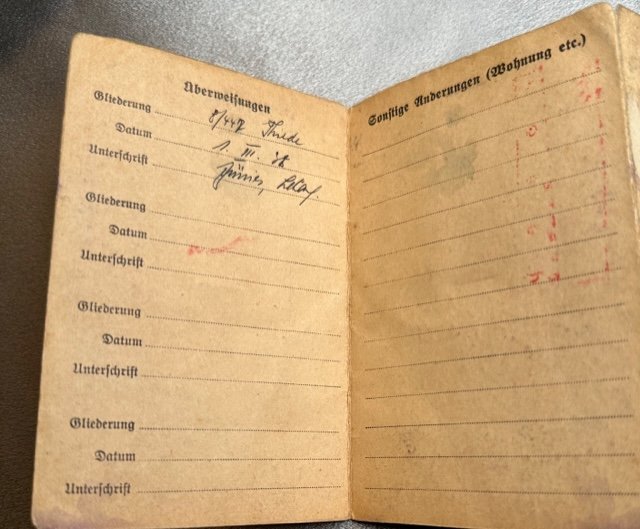 Überweisungen
Gliederung 8/447
Datum 1. III. 38
Unterschrift
Gliederung
Datum
Unterschrift
Gliederung
Datum
Unterschrift
Gliederung
Datum
Unterschrift
Sonstige Änderungen (Wohnung etc.)